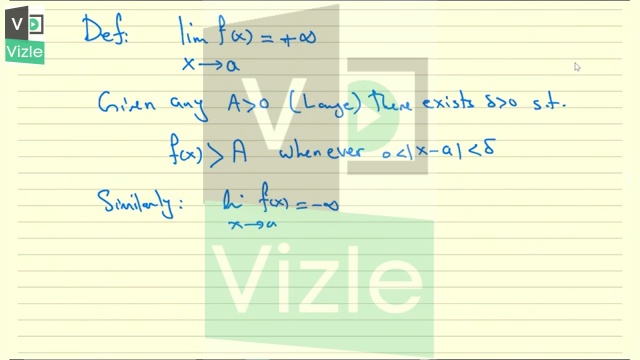 V D
Vizle
Def: lim f(x) = +∞
x→a
Given any A>0 (Large) there exists δ>0 s.t.
f(x) > A whenever 0<|x-a|<δ
Similarly: lim f(x) = -∞
x→a
V
Vizle